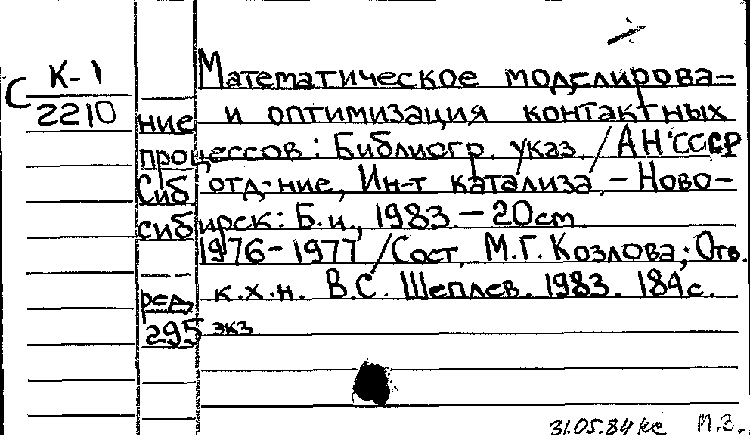 С К-1
2210
Математическое моделирова-
ние и оптимизация контактных
процессов: Библиогр. указ. / АН СССР
Сиб. отд-ние, Ин-т катализа. – Ново-
сибирск: Б.и., 1983. – 20 cm
1976-1977 / Сост. М.Г. Козлова; Отв.
ред. к.х.н. В.С. Шеплев. 1983. 184 с.
295 экз
31.05.84 П.З.